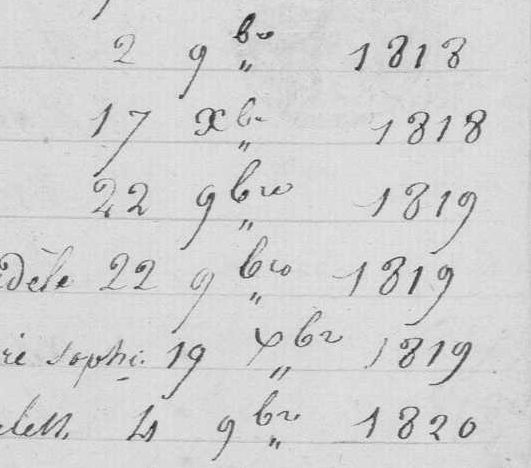 2 9bre 1818
17 xbre 1818
22 9bre 1819
dèle 22 9bre 1819
rie sophi. 19 xbre 1819
4 9bre 1820